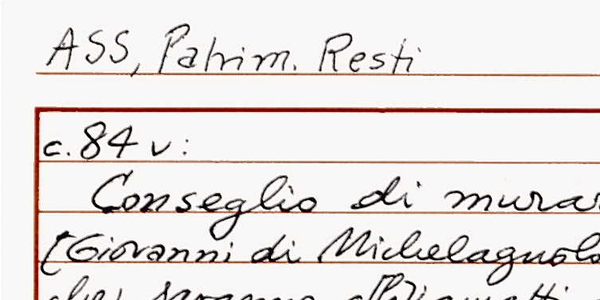 ASS, Patrim. Resti
c. 84 v:
Conseglio di murar
[Giovanni di Michelagnolo
che, saranno